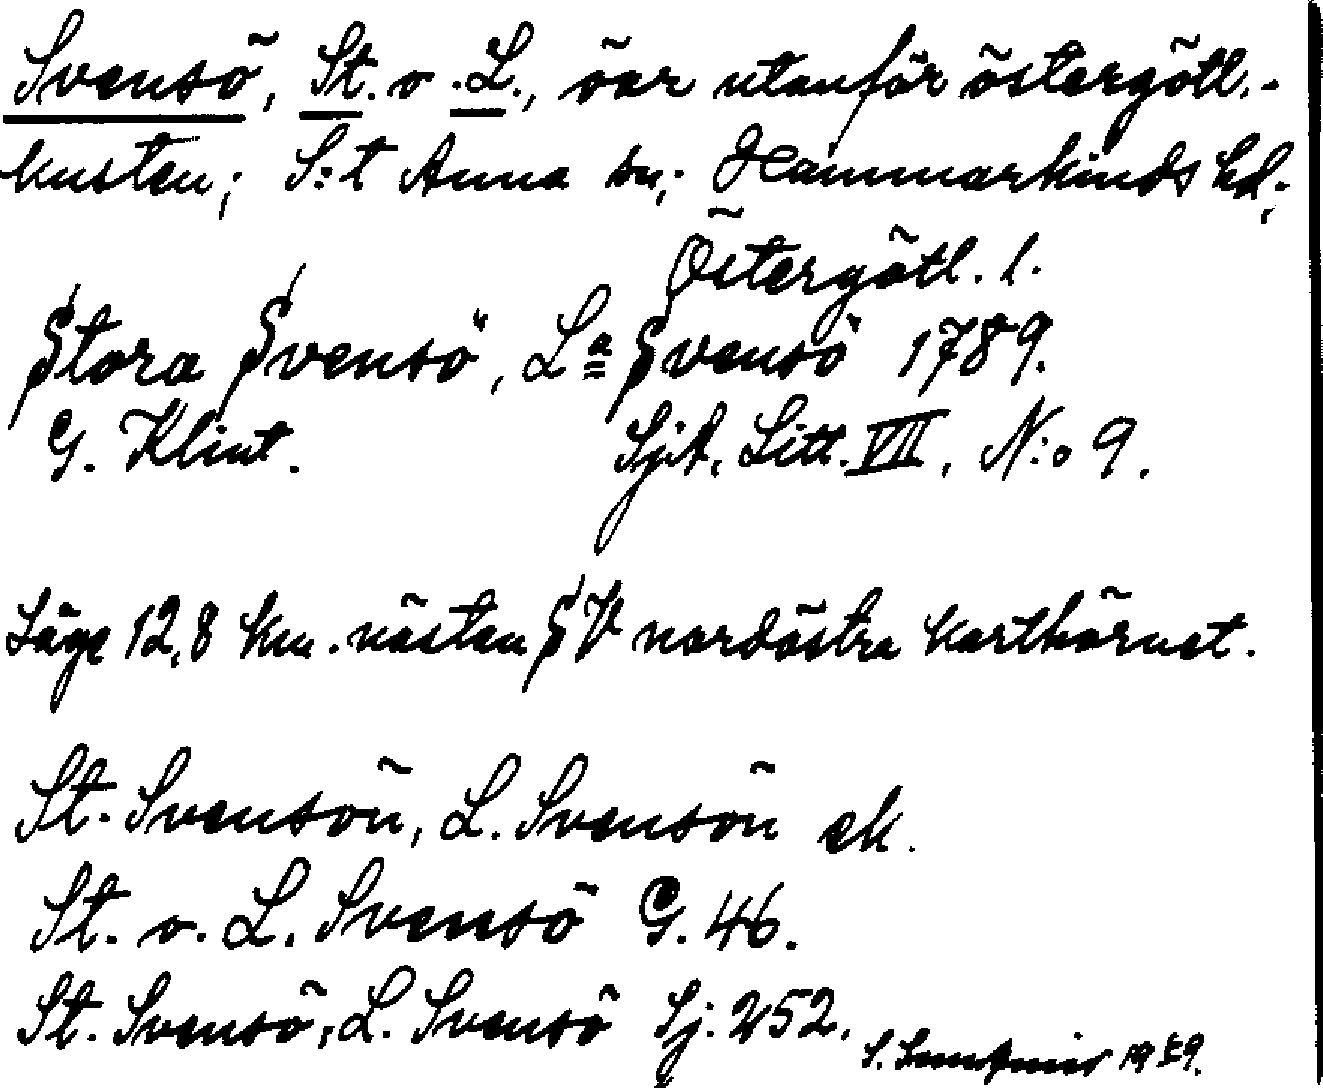 Svensö, St. o. L., öar utanför östergötl.-
kusten; S:t Anna sn; Hammarkinds hd;
Östergötl. l.
Stora Svensö, La Svensö 1789.
G. Klint. SjA, Litt. VII, N:o 9.
Läge 12,8 km. nästan SV nordöstra karthörnet.
St. Svensön, L. Svensön ek.
St. o. L. Svensö G. 46.
St. Svensö, L. Svensö Sj. 252.
S. 19